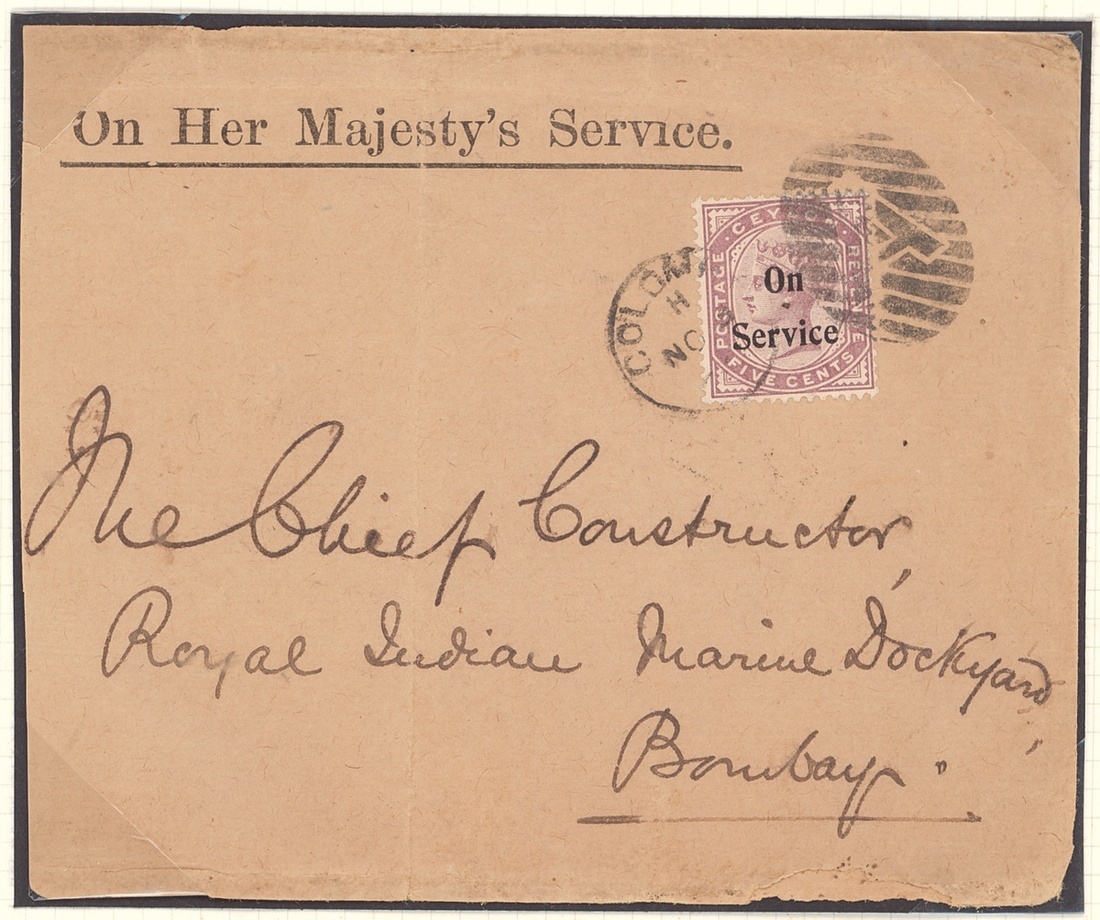 On Her Majesty's Service.
POSTAGE · CEYLON · REVENUE
FIVE CENTS
On
Service
H
NO
The Chief Constructor,
Royal Indian Marine Dockyard,
Bombay.